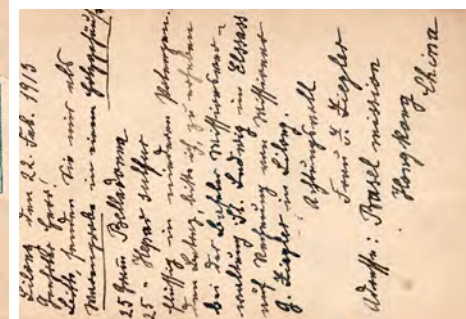 Lilong den 22. Feb. 1913
Geehrter Herr!
Bitte, senden Sie mir als
in einem
25 gram Belladonna
25 " Hepar sulfur
flüssig in niederen Potenzen.
Den Betrag bitte ich, zu erheben
bei der Basler Missionsver-
waltung St. Ludwig im Elsass
auf Rechnung von Missionar
G. Ziegler in Lilong.
Achtungsvoll
Frau J. Ziegler
Adresse: Basel mission
Hongkong
China